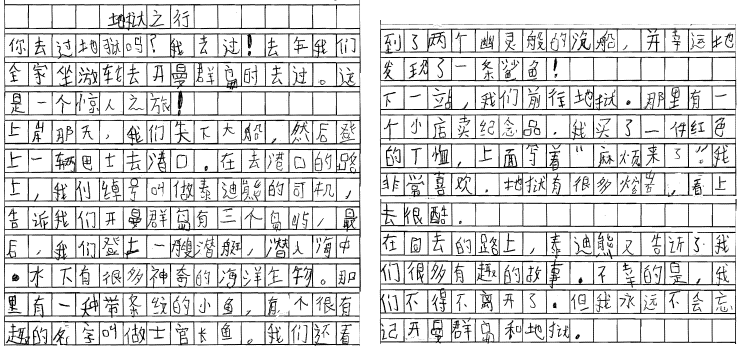 地狱之行
你去过地狱吗？我去过！去年我们
全家坐游轮去开曼群岛时去过。这
是一个惊人之旅！
上岸那天，我们先下大船，然后登
上一辆巴士去港口。在去港口的路
上，我们绰号叫做泰迪熊的司机，
告诉我们开曼群岛有三个岛屿，最
后，我们登上一艘潜艇，潜入海中
。水下有很多神奇的海洋生物。那
里有一种带条纹的小鱼，有个很有
趣的名字叫做士官长鱼。我们还看
到了两个幽灵般的沉船，并幸运地
发现了一条鲨鱼！
下一站，我们前往地狱。那里有一
个小店卖纪念品。我买了一件红色
的T恤，上面写着“麻烦来了”。我
非常喜欢。地狱有很多熔岩，看上
去很酷。
在回去的路上，泰迪熊又告诉了我
们很多有趣的故事。不幸的是，我
们不得不离开了。但我永远不会忘
记开曼群岛和地狱。